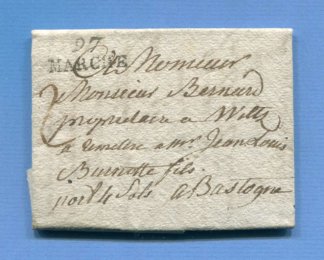 97
MARCHE
A Monsieur
Monsieur Bernard
propriétaire a Wiltz
a remettre a Mr Jean Louis
fils.
port 4 sols a Bastogne